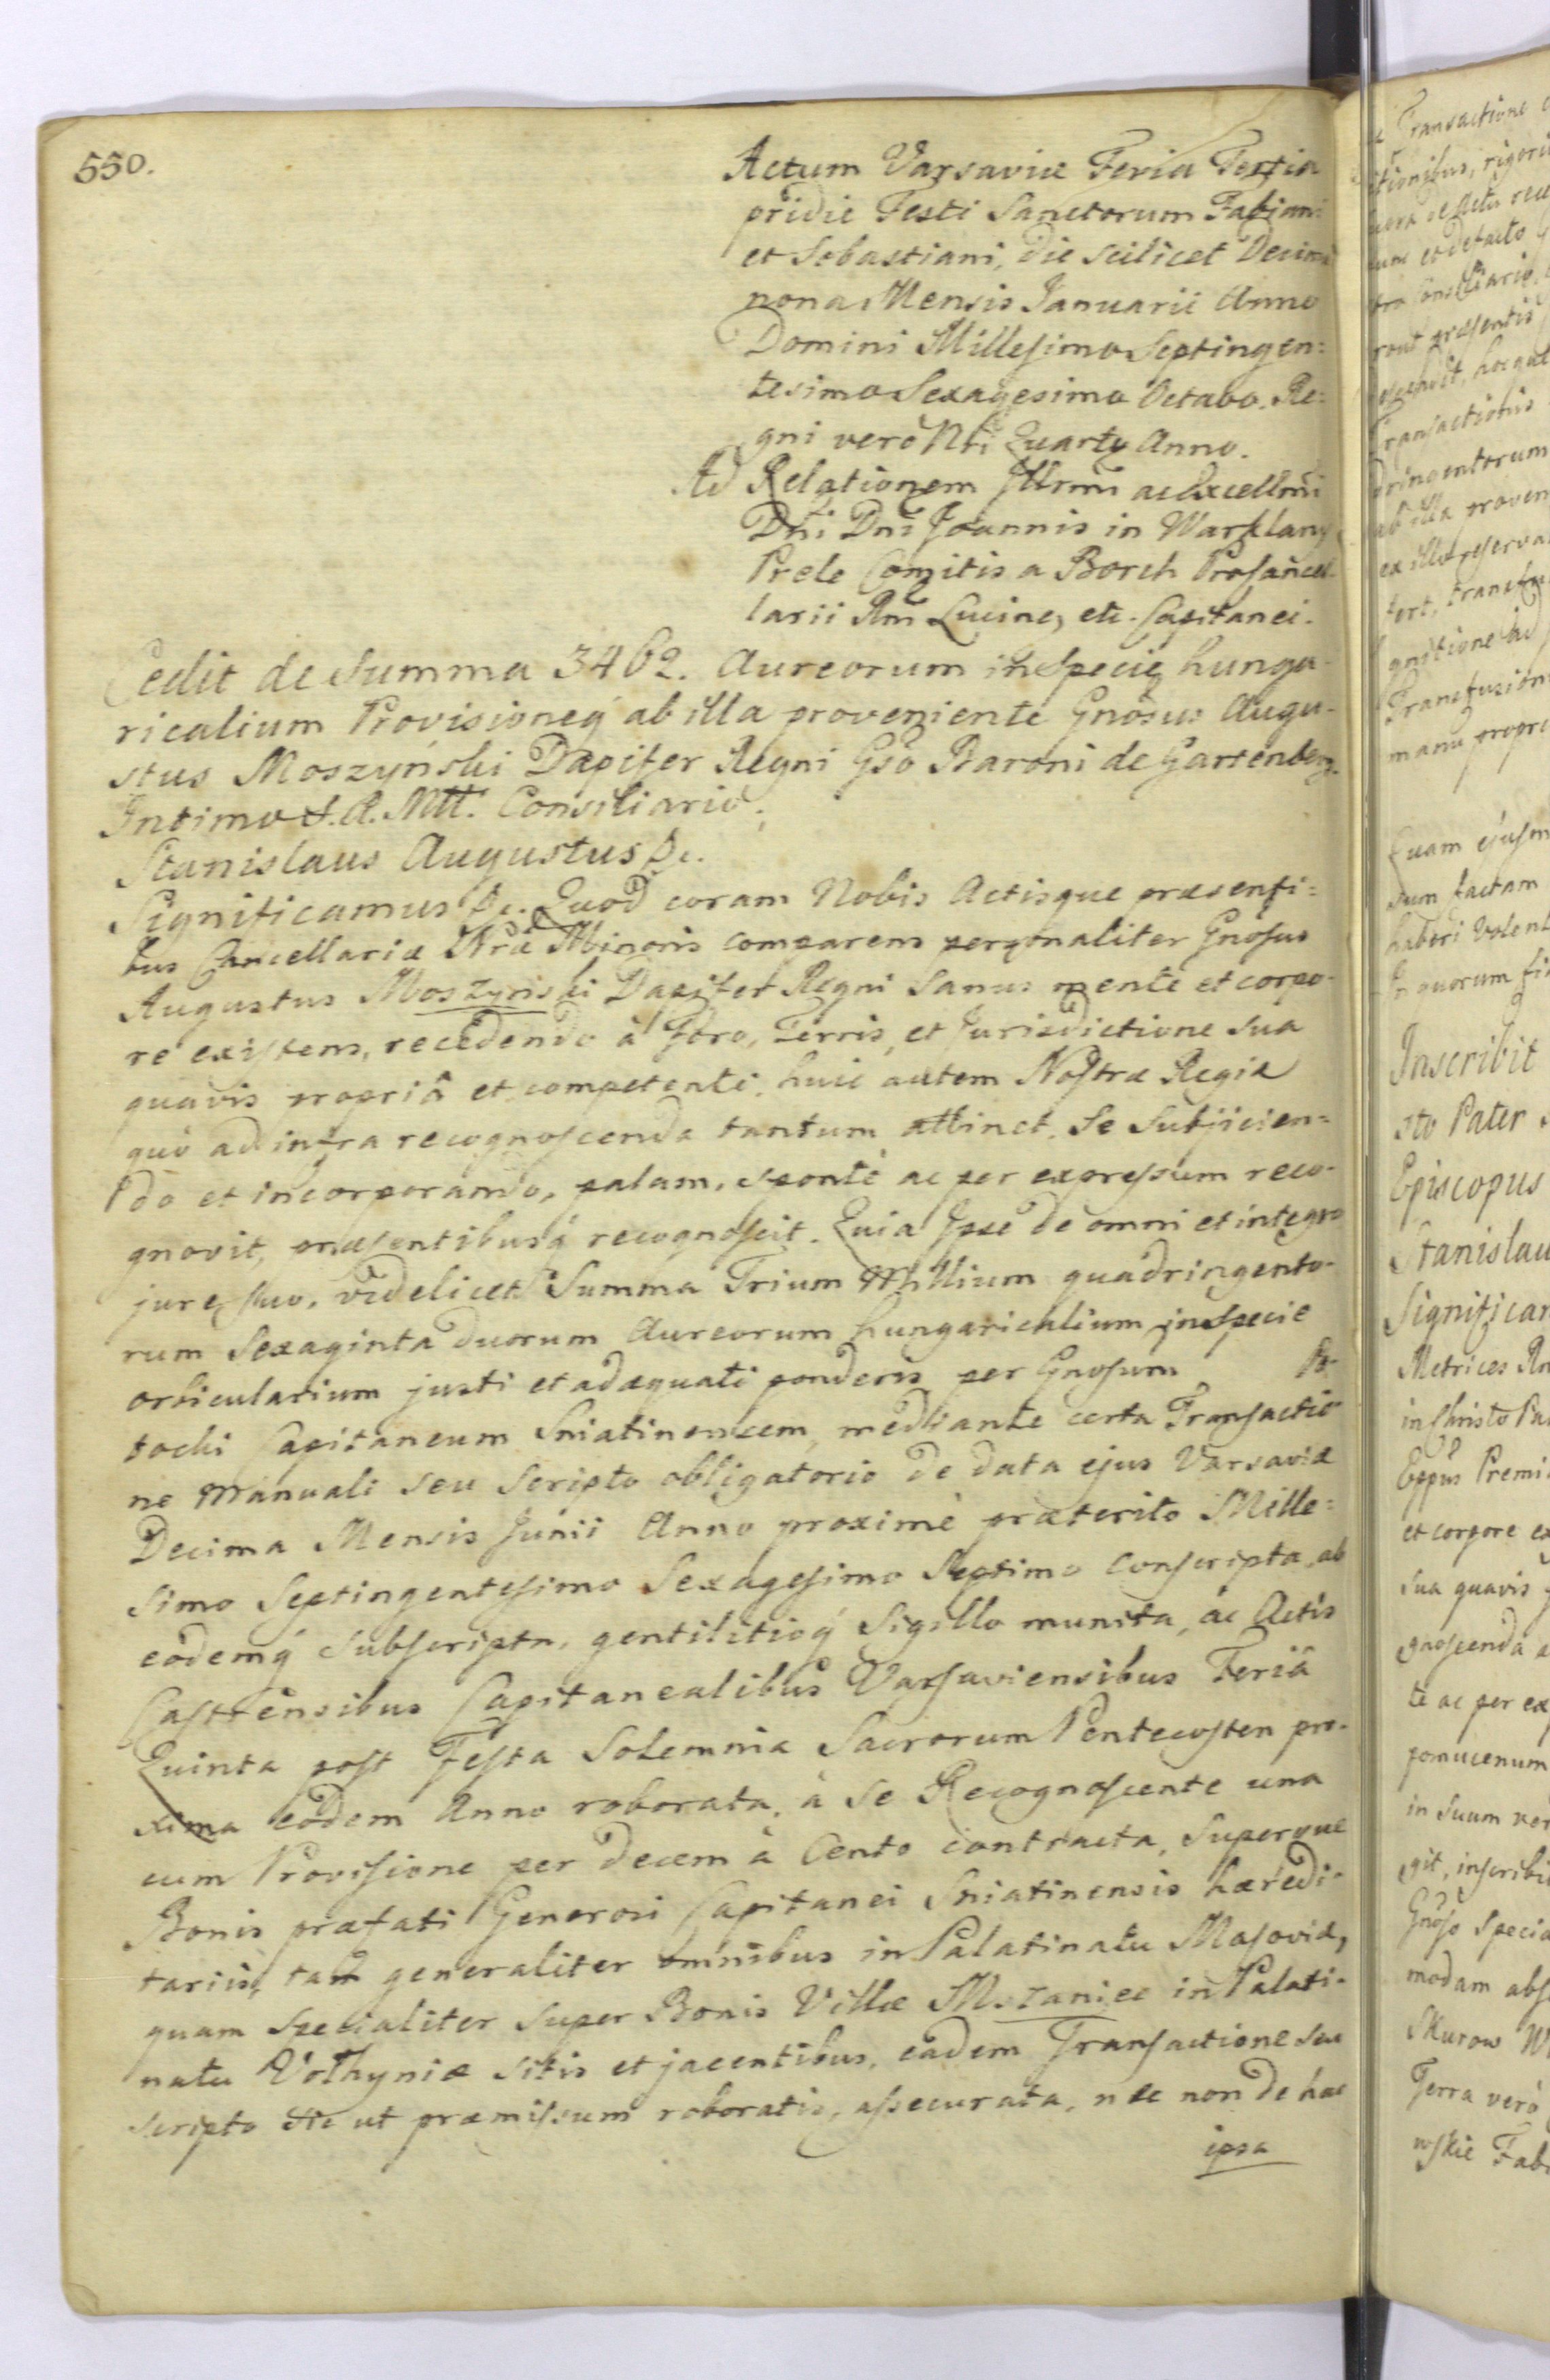 550.
Actum Varsaviæ Feria Tertia
pridie Festi Sanctorum Fabiani
et Sebastiani, die scilicet Decima
nona Mensis Januarii Anno
Domini Millesimo Septingen:
tesimo Sexagesimo Octavo. Re:
gni verò Nri Quarto Anno.
Ad Relationem Illrmi ac Excellmi
Dni Dni Joannis in Warklany
Prele Comitis a Borch Procancel-
larii Rni Lucinen, etc. Capitanei.
Cedit de Summa 3462. Aureorum in Specie hunga-
ricalium Provisioneq́ ab illa proveniente Gnosus Augu-
stus Moszyński Dapifer Regni Gso Baroni de Gartenberg
Intimo S.R.Mtt. Consiliario.
Stanislaus Augustus &c.
Significamus &c. Quod coram Nobis Actisque præsenti:
bus Cancellariæ Nræ Minoris comparens personaliter Gnosus
Augustus Moszyński Dapifer Regni sanus mente et corpo-
re existens, recedendo à Foro, Terris, et Jurisdictione sua
quavis propriâ et competenti, huic autem Nostræ Regiæ
quò ad infra recognoscenda tantum attinet, se subjicien=
do et incorporando, palam, sponte ac per expressum reco-
gnovit, præsentibusq́ recognoscit. Quia Ipse de omni et integro
jure suo, videlicet Summa Trium Millium quadringento-
rum Sexaginta duorum Aureorum hungaricalium in Specie
orbicularium justi et adæquati ponderis per Gnosum Po-
tocki Capitaneum Sniatinensem, mediante certa Transactio-
ne Manuali seu Scripto obligatorio de data ejus Varsaviæ
Decima Mensis Junii Anno proximè præterito Mille=
simo Septingentesimo Sexagesimo Septimo conscripta, ab
eodemq́ subscripta, gentilitioq́ Sigillo munita, ac Actis
Castrensibus Capitanealibus Varsaviensibus Feriâ
Quinta post Festa Solemnia Sacrorum Pentecosten pro-
xima eodem Anno roborata, à se Recognoscente una
cum Provisione per decem à Cento contracta, superque
Bonis præfati Generosi Capitanei Sniatinensis hæredi-
tariis, tam generaliter omnibus in Palatinatu Masoviæ,
quam specialiter super Bonis Villæ Mszaniec in Palati-
natu Volhyniæ sitis et jacentibus, eâdem Transactione seu
scripto sic ut præmissum roboratis, assecurata, nec non de hac
ipsa
Transactione
rigori
de Actu rece
tunc et defacto
Consiliario,
præsentis
Transactionis
dringentorum
ab illa proven
ex illo reserva
fert, transfu
gnitione
Transfusion
manu propri
Quam ejusm
sum factam
haberi volent
In quorum fi
Inscribit
sto Pater
Episcopus
Stanislau
Significam
Metrices Rn
in Christo Pa
Eppus Premi
et corpore ex
sua quavis
gnoscenda a
te ac per ex
pomucenum
in suum ver
git, inscribi
Gnoso Specia
modam abs
Skurow W
Terra verò
wskie Fab